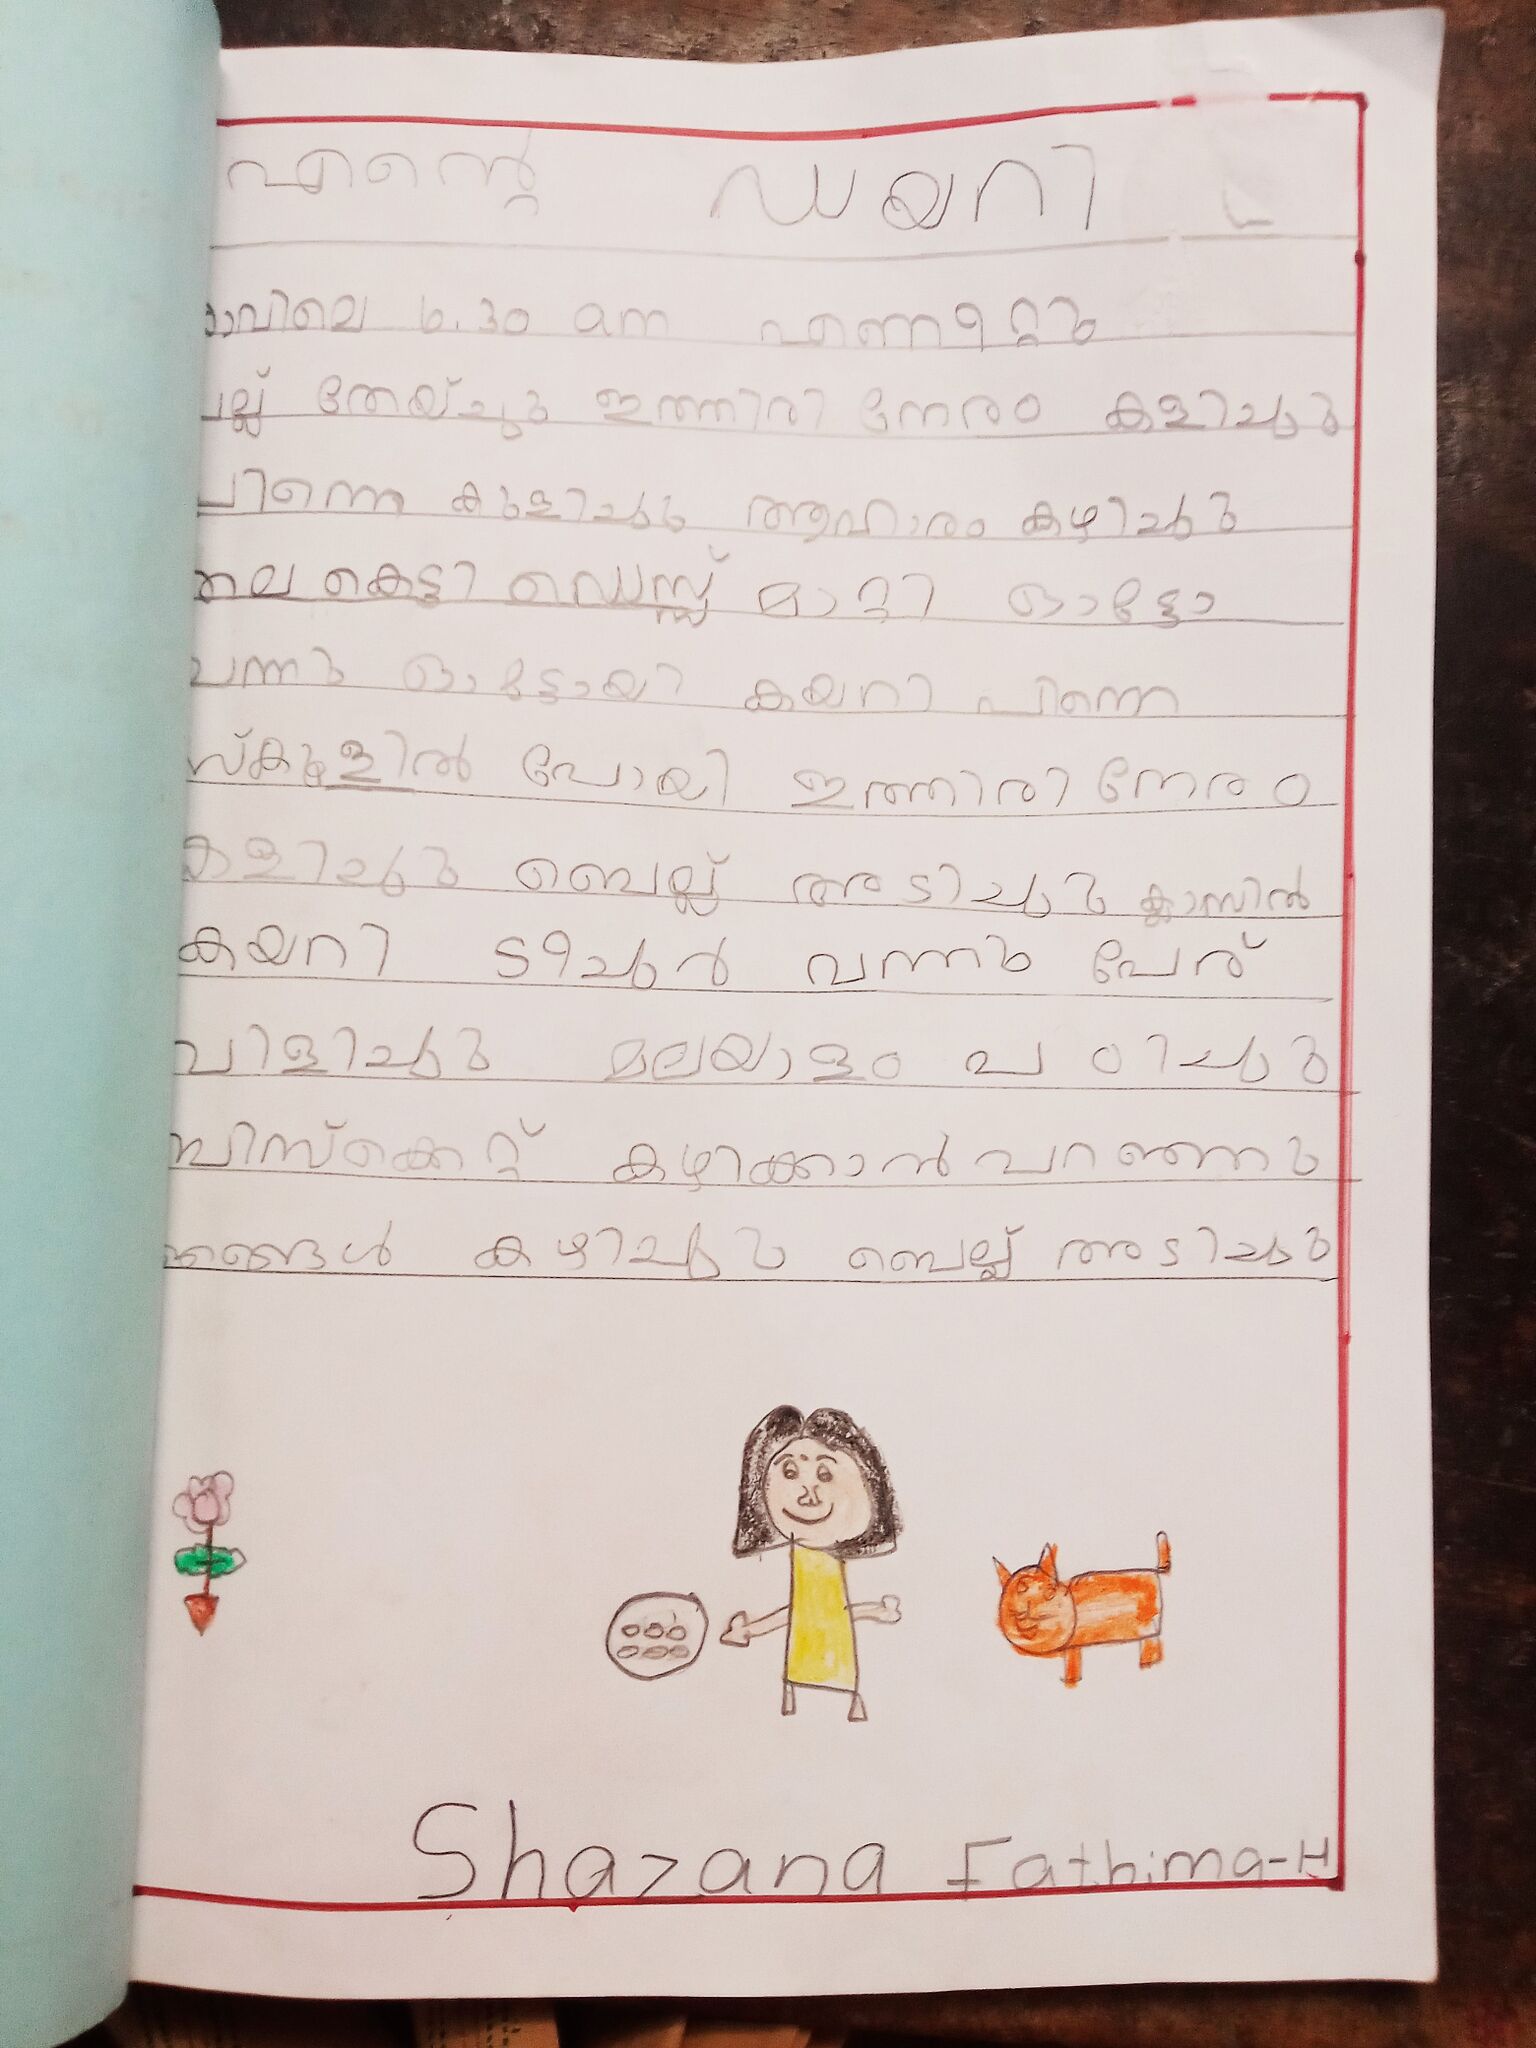 എന്റെ ഡയറി
രാവിലെ 6.30 am എണീറ്റു
പല്ല് തേയ്ച്ചു ഇത്തിരി നേരം കളിച്ചു
പിന്നെ കുളിച്ചു ആഹാരം കഴിച്ചു
തല കെട്ടി ഡ്രെസ്സ് മാറ്റി ഓട്ടോ
വന്നു ഓട്ടോയി കയറി പിന്നെ
സ്കൂളിൽ പോയി ഇത്തിരി നേരം
കളിച്ചു ബെല്ല് അടിച്ചു ക്ലാസിൽ
കയറി ടീച്ചർ വന്നു പേര്
വിളിച്ചു മലയാളം പഠിച്ചു
ബിസ്ക്കെറ്റ് കഴിക്കാൻ പറഞ്ഞു
ഞങ്ങൾ കഴിച്ചു ബെല്ല് അടിച്ചു
Shazana Fathima-H